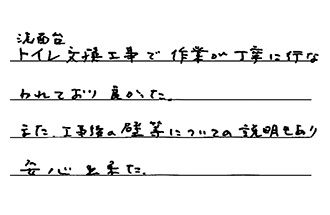 洗面台
トイレ交換工事で作業が丁寧に行な
われており良かった。
また、工事後の壁等についての説明もあり
安心出来た。